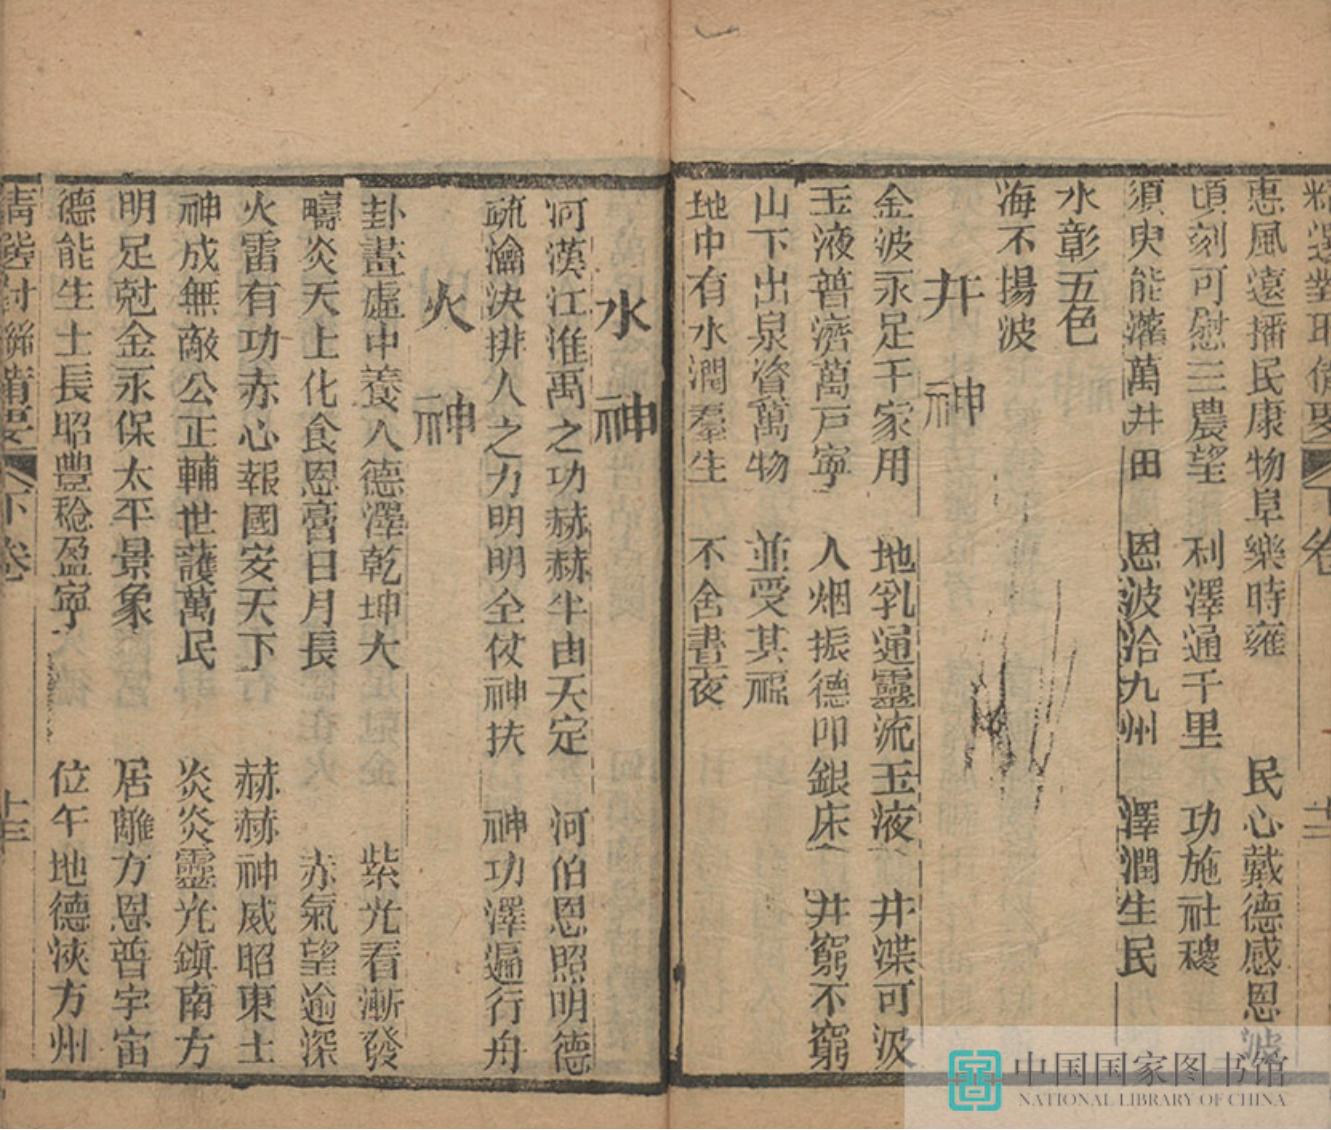 精選對聯備要 下卷 十二
惠風遠播民康物阜樂時雍 民心戴德感恩波
頃刻可慰三農望 利澤通千里 功施社稷
須臾能濡萬井田 恩波洽九州 澤潤生民
水彰五色
海不揚波
井神
金波永足千家用 地乳通靈流玉液 井渫可汲
玉液普濟萬戸寧 人烟振德叩銀床 井窮不窮
山下出泉資萬物 並受其福
地中有水潤羣生 不舍晝夜
水神
河漢江淮禹之功赫赫半由天定 河伯恩照明德
疏瀹決排人之力明明全仗神扶 神功澤遍行舟
火神
卦畫虛中養人德澤乾坤大 紫光看漸發
疇炎天上化食恩膏日月長 赤氣望逾深
火雷有功赤心報國安天下 赫赫神威昭東土
神成無敵公正輔世護萬民 炎炎靈光鎮南方
明足尅金永保太平景象 居離方恩普宇宙
德能生土長昭豐稔盈寧 位午地德浹方州
精選對聯備要 下卷 十三
中国国家图书馆
NATIONAL LIBRARY OF CHINA